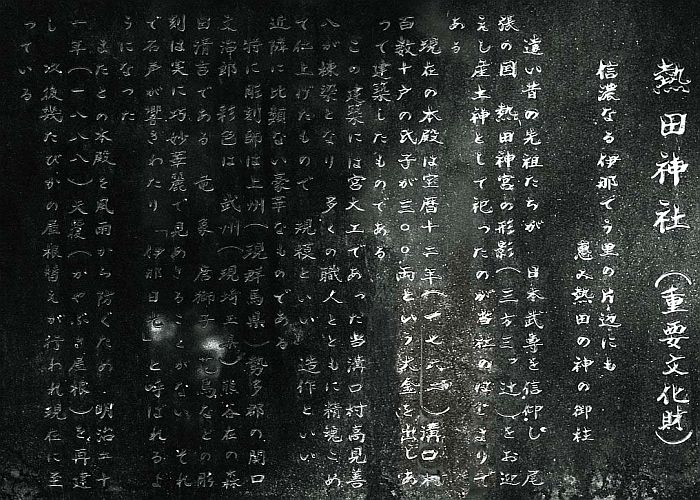 熱田神社 (重要文化財)
信濃なる伊那でう里の片辺にも
恵み熱田の神の御柱
遠い昔の先祖たちが 日本武尊を信仰し 尾
張の国 熱田神宮の形影(三方三ッ辻)をお迎
えし産土神として祀ったのが当社のはじまりで
ある
現在の本殿は宝暦十二年(一七六二)溝口村
百数十戸の氏子が三〇〇両という大金を出しあ
って建築したものである
この建築には宮大工であった当溝口村高見善
八が棟梁となり 多くの職人とともに精魂こめ
て仕上げたもので 規模といい 造作といい
近隣に比類ない豪華なものである
特に彫刻師は上州(現群馬県)勢多郡の関口
文治郎 彩色は 武州(現埼玉県)熊谷在の森
田清吉である 竜 象 唐獅子 花鳥などの彫
刻は実に巧妙華麗で見あきることがない それ
で名声が響きわたり「伊那日光」と呼ばれるよ
うになった
またこの本殿を風雨から防ぐため 明治二十
一年(一八八八)天覆(かやぶき屋根)を再建
し 以後幾たびかの屋根替えが行われ現在に至
っている